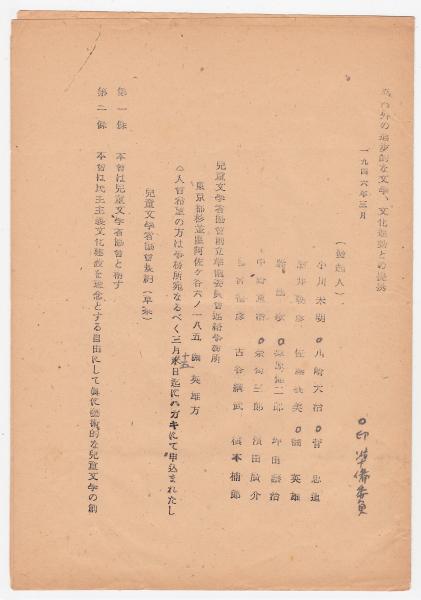 内外の進歩的な文学、文化運動との提携
一九四六年三月
(発起人)
小川未明 川崎大治 菅忠道
佐藤義美 関英雄
二郎 坪田譲治
三郎 濱田廣介
古谷綱武 槇本楠郎
○印 準備委員
兒童文学者協會創立準備委員會連絡事務所
東京都杉並區阿佐ヶ谷六ノ一八五 関英雄方
○入會希望の方は事務所宛なるべく三月十五日迄にハガキにて申込まれたし
兒童文学者協會規約(草案)
第一條 本會は兒童文学者協會と称す
第二條 本會は民主主義文化建設を理念とする自由にして眞に藝術的な兒童文学の創